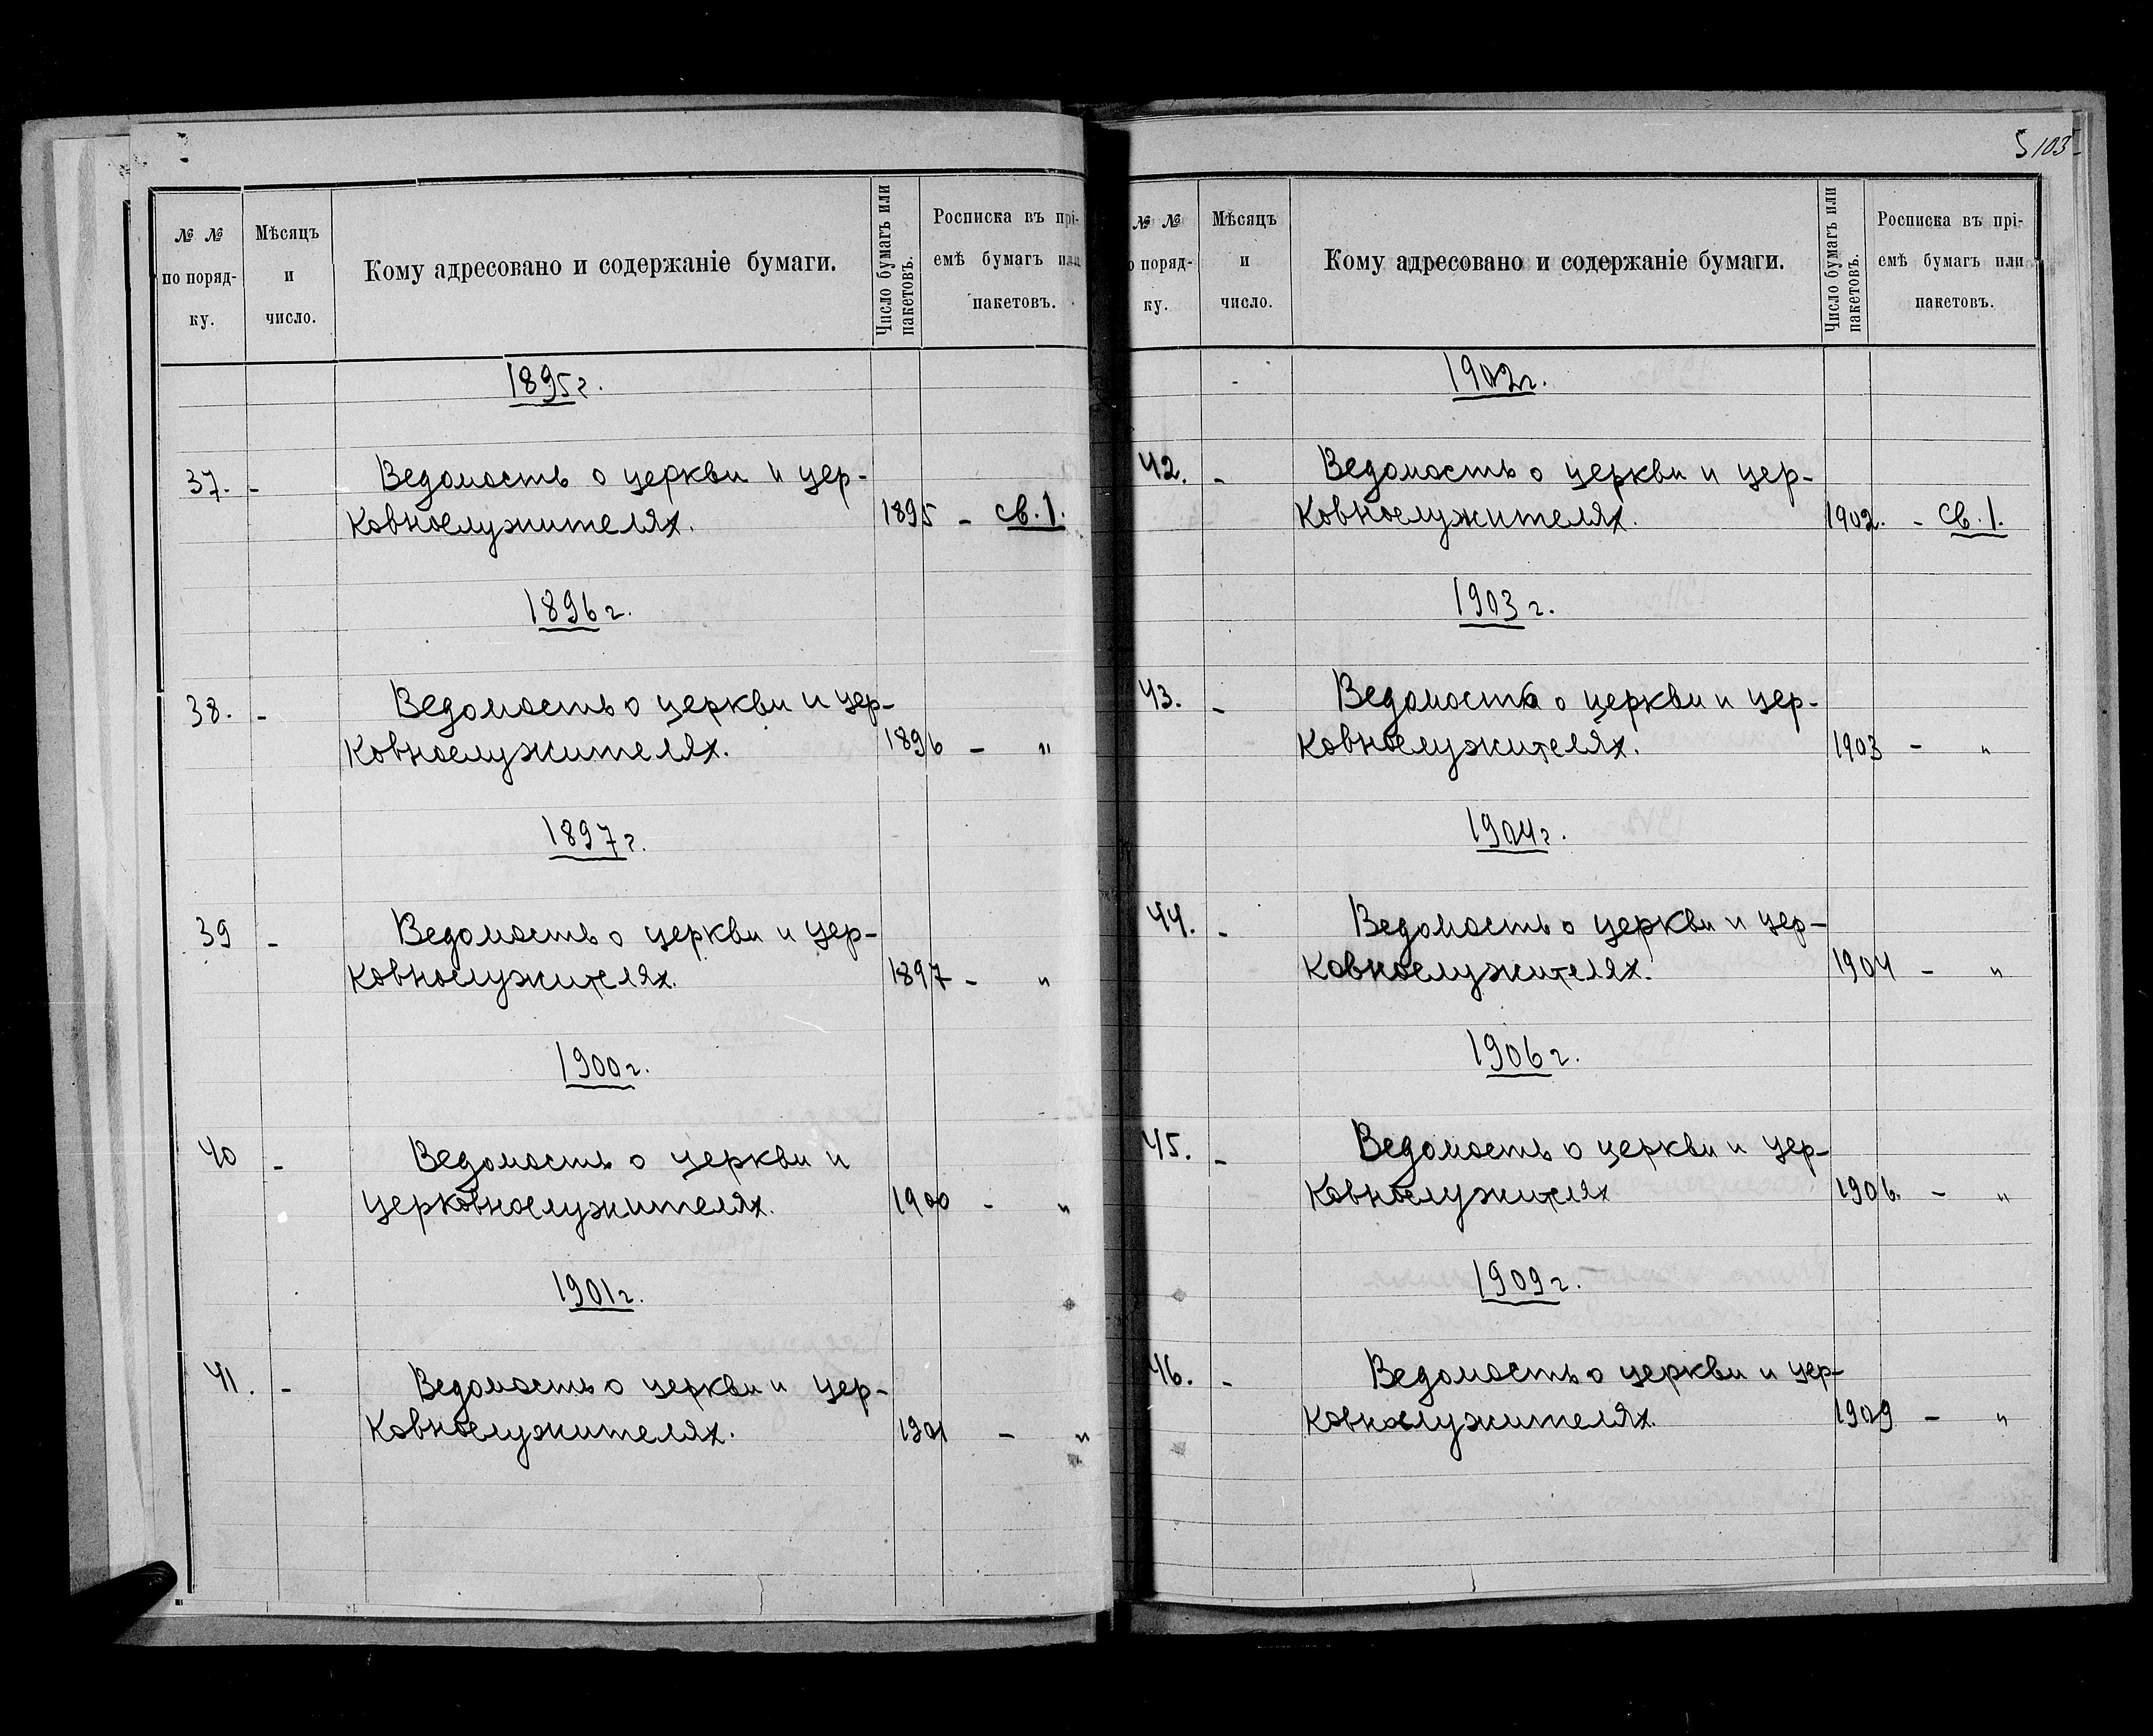 № №
по поряд-
ку.
Мѣсяцъ
и
число.
Кому адресовано и содержаніе бумаги.
Число бумагъ или
пакетовъ.
Росписка въ прі-
емѣ бумагъ или
пакетовъ.
1895 г.
37. - Ведомость о церкви и цер-
ковнослужителях. 1895 - св. 1.
1896 г.
38. - Ведомость о церкви и цер-
ковнослужителях. 1896 - "
1897 г.
39 - Ведомость о церкви и цер-
ковнослужителях. 1897 - "
1900 г.
40 - Ведомость о церкви и
церковнослужителях. 1900 - "
1901 г.
41. - Ведомость о церкви и цер-
ковнослужителях. 1901 - "
5 103
№ №
о поряд-
ку.
Мѣсяцъ
и
число.
Кому адресовано и содержаніе бумаги.
Число бумагъ или
пакетовъ.
Росписка въ прі-
емѣ бумагъ или
пакетовъ.
1902 г.
42. - Ведомость о церкви и цер-
ковнослужителях. 1902. - св. 1.
1903 г.
43. - Ведомость о церкви и цер-
ковнослужителях. 1903 - "
1904 г.
44. - Ведомость о церкви и цер-
ковнослужителях. 1904 - "
1906 г.
45. - Ведомость о церкви и цер-
ковнослужителях 1906. - "
1909 г.
46. - Ведомость о церкви и цер-
ковнослужителях. 1909 - "